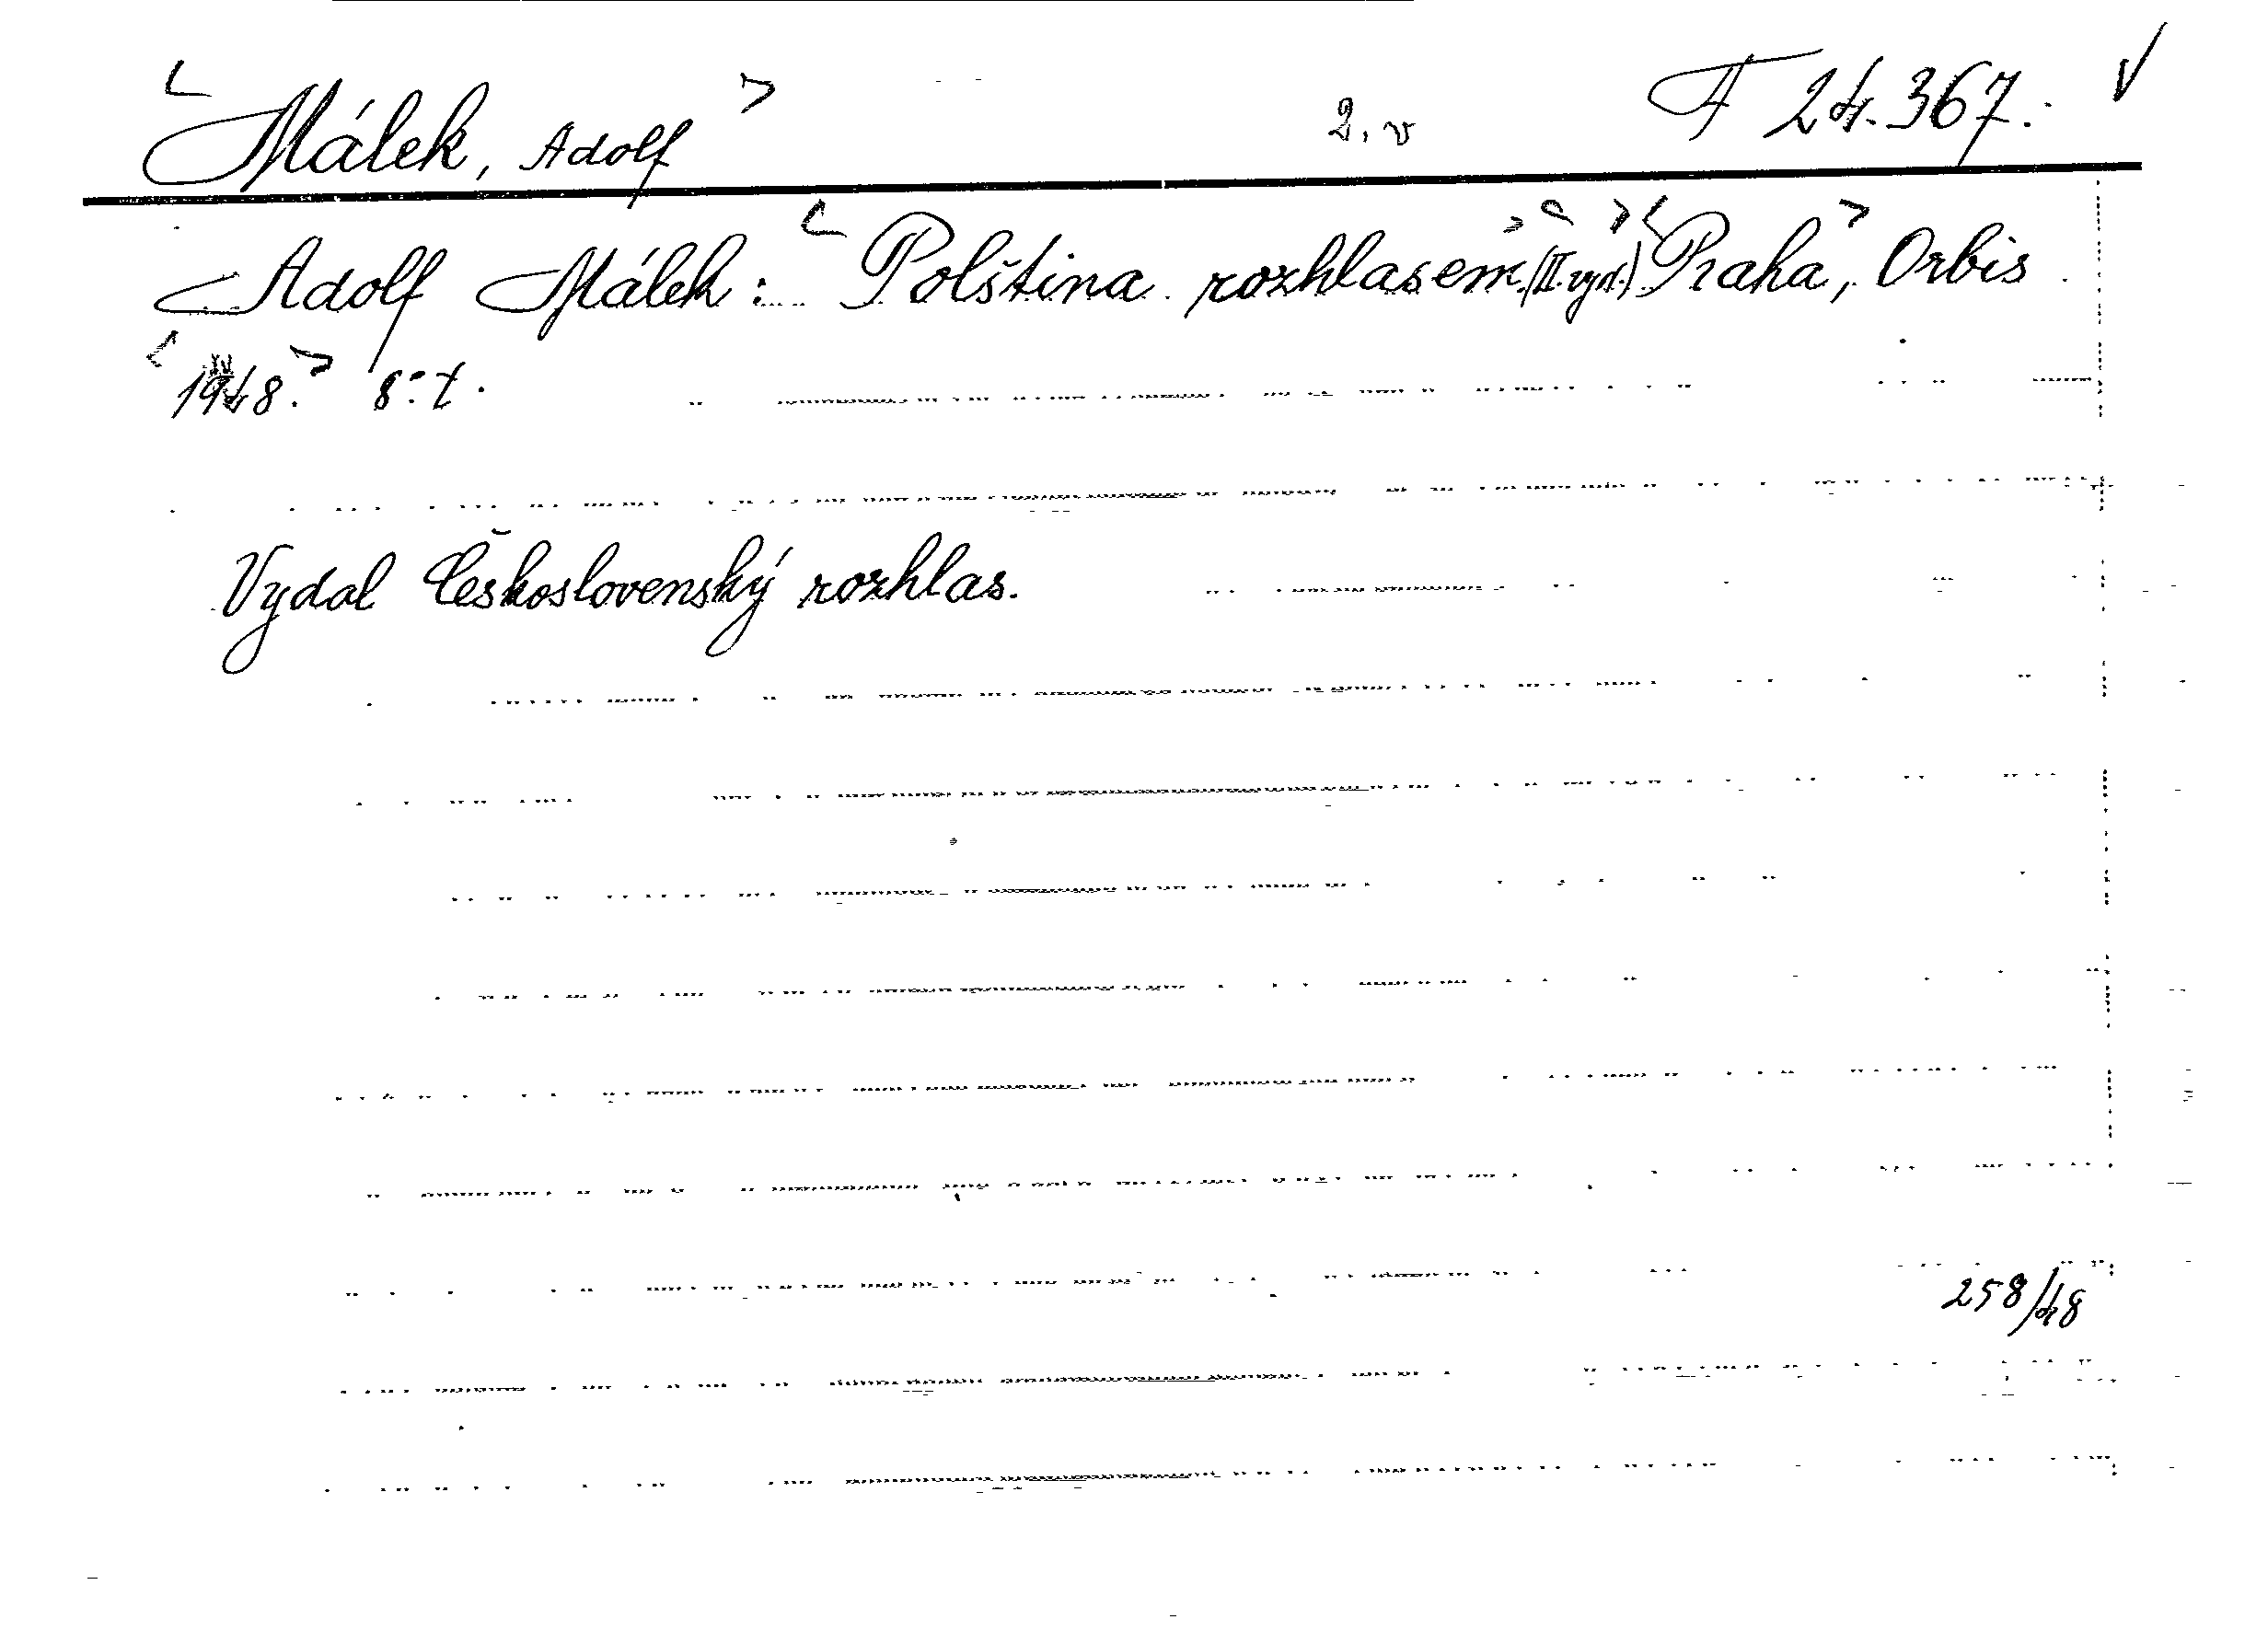 Málek, Adolf 2. v F 24.367.
Adolf Málek: Polština rozhlasem. (II. vyd.) Praha, Orbis
1948. 8°.
Vydal Československý rozhlas.
258/48